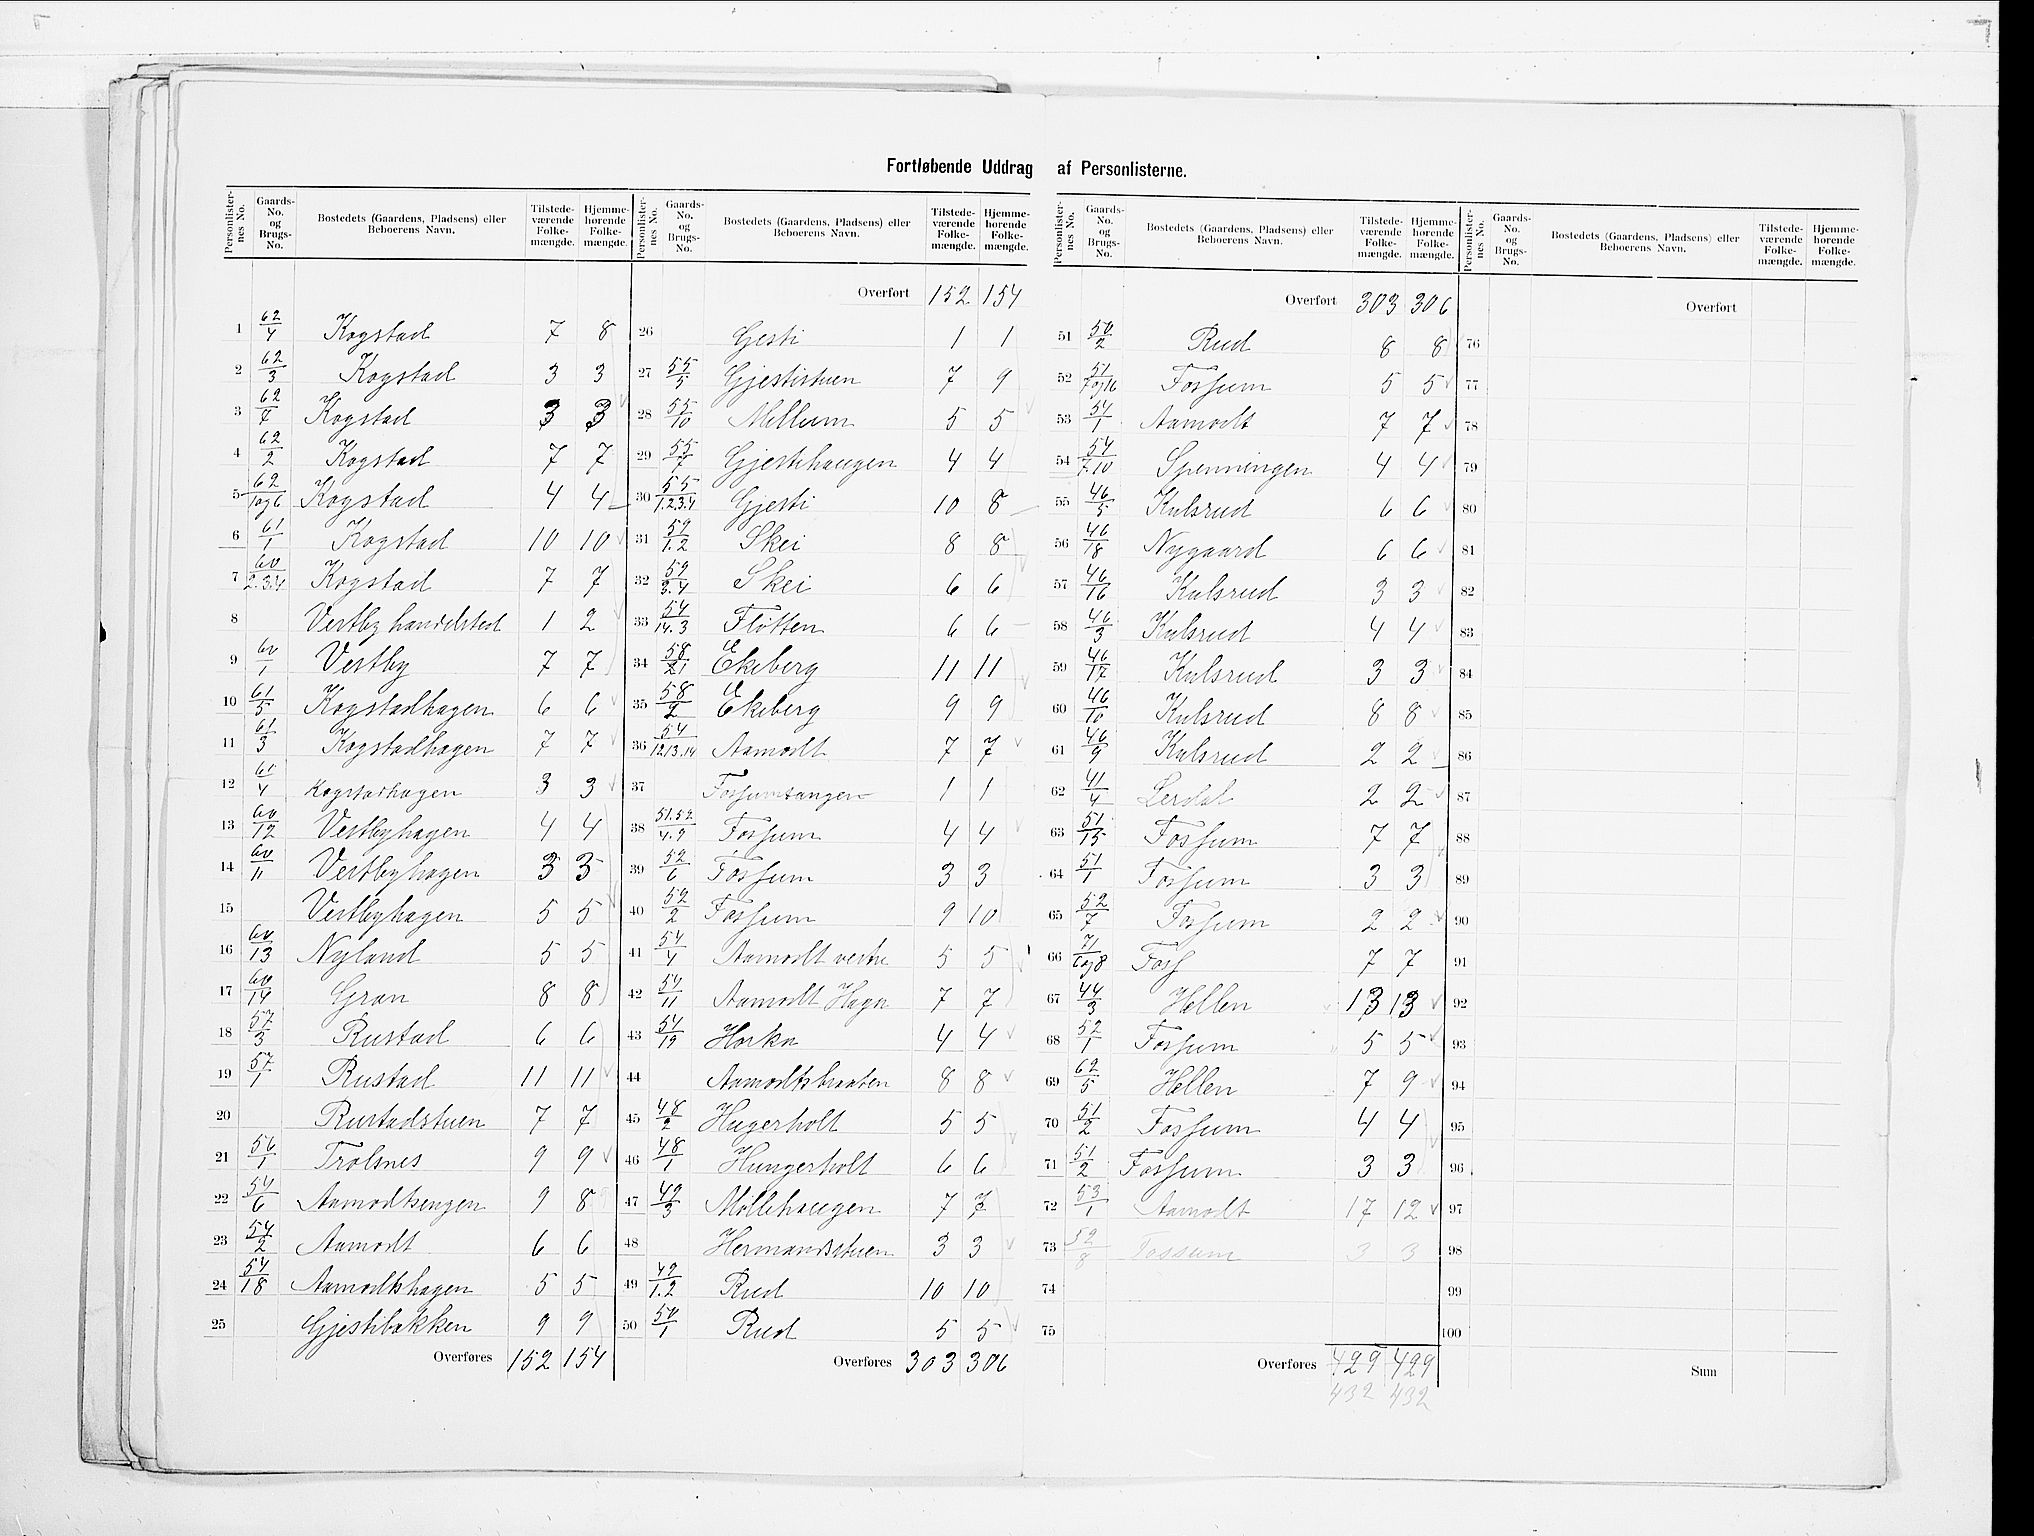 Fortløbende Uddrag af Personlisterne.
Personlister-nes No. Gaards-No. og Brugs-No. Bostedets (Gaardens, Pladsens) eller Beboerens Navn. Tilstede-værende Folke-mængde. Hjemme-hørende Folke-mængde.
1 62/4 Kogstad 7 8
2 62/3 Kogstad 3 3
3 62/7 Kogstad 3 3
4 62/2 Kogstad 7 7
5 62/1og6 Kogstad 4 4
6 61/1 Kogstad 10 10
7 60/2.3.4 Kogstad 7 7
8 Vestby handelsted 1 2
9 60/1 Vestby 7 7
10 61/5 Kogstadhagen 6 6
11 61/3 Kogstadhagen 7 7
12 61/4 Kogstadhagen 3 3
13 60/12 Vestbyhagen 4 4
14 60/11 Vestbyhagen 3 3
15 Vestbyhagen 5 5
16 60/13 Nyland 5 5
17 60/14 Gran 8 8
18 57/3 Rustad 6 6
19 57/1 Rustad 11 11
20 Rustadstuen 7 7
21 56/1 Trolsnes 9 9
22 54/6 Aamodtsengen 9 8
23 54/2 Aamodt 6 6
24 54/18 Aamodtshagen 5 5
25 Gjestibakken 9 9
Overføres 152 154
Personlister-nes No. Gaards-No. og Brugs-No. Bostedets (Gaardens, Pladsens) eller Beboerens Navn. Tilstede-værende Folke-mængde. Hjemme-hørende Folke-mængde.
Overført 152 154
26 Gjesti 1 1
27 55/5 Gjestistuen 7 9
28 55/10 Mellum 5 5
29 55/7 Gjestihaugen 4 4
30 55/1.2.3.4 Gjesti 10 8
31 59/1.2 Skei 8 8
32 59/3.4 Skei 6 6
33 54/14.3 Fløtten 6 6
34 58/21 Ekeberg 11 11
35 58/2 Ekeberg 9 9
36 54/12.13.14 Aamodt 7 7
37 Fossumtangen 1 1
38 51.52/4.9 Fossum 4 4
39 52/6 Fossum 3 3
40 52/2 Fossum 9 10
41 54/4 Aamodt vestre 5 5
42 54/11 Aamodt Hagn 7 7
43 54/19 Horkn 4 4
44 Aamodtsbraaten 8 8
45 48/2 Hugerholt 5 5
46 48/1 Hungerholt 6 6
47 49/3 Møllehaugen 7 7
48 Hermandsstuen 3 3
49 49/1.2 Rud 10 10
50 50/1 Rud 5 5
Overføres 303 306
Personlister-nes No. Gaards-No. og Brugs-No. Bostedets (Gaardens, Pladsens) eller Beboerens Navn. Tilstede-værende Folke-mængde. Hjemme-hørende Folke-mængde.
Overført 303 306
51 50/2 Rud 8 8
52 51/7og16 Fossum 5 5
53 54/1 Aamodt 7 7
54 54/7.10 Spenningen 4 4
55 46/5 Kulsrud 6 6
56 46/18 Nygaard 6 6
57 46/16 Kulsrud 3 3
58 46/3 Kulsrud 4 4
59 46/17 Kulsrud 3 3
60 46/10 Kulsrud 8 8
61 46/9 Kulsrud 2 2
62 41/4 Lerdal 2 2
63 51/15 Fossum 7 7
64 51/1 Fossum 3 3
65 52/7 Fossum 2 2
66 71/6og8 Foss 7 7
67 44/3 Hellen 13 13
68 52/1 Fossum 5 5
69 62/5 Hellen 7 9
70 51/2 Fossum 4 4
71 51/2 Fossum 3 3
72 53/1 Aamolt 17 12
73 52/8 Fossum 3 3
74
75
Overføres 429 429
432 432
Personlister-nes No. Gaards-No. og Brugs-No. Bostedets (Gaardens, Pladsens) eller Beboerens Navn. Tilstede-værende Folke-mængde. Hjemme-hørende Folke-mængde.
Overført
76
77
78
79
80
81
82
83
84
85
86
87
88
89
90
91
92
93
94
95
96
97
98
99
100
Sum